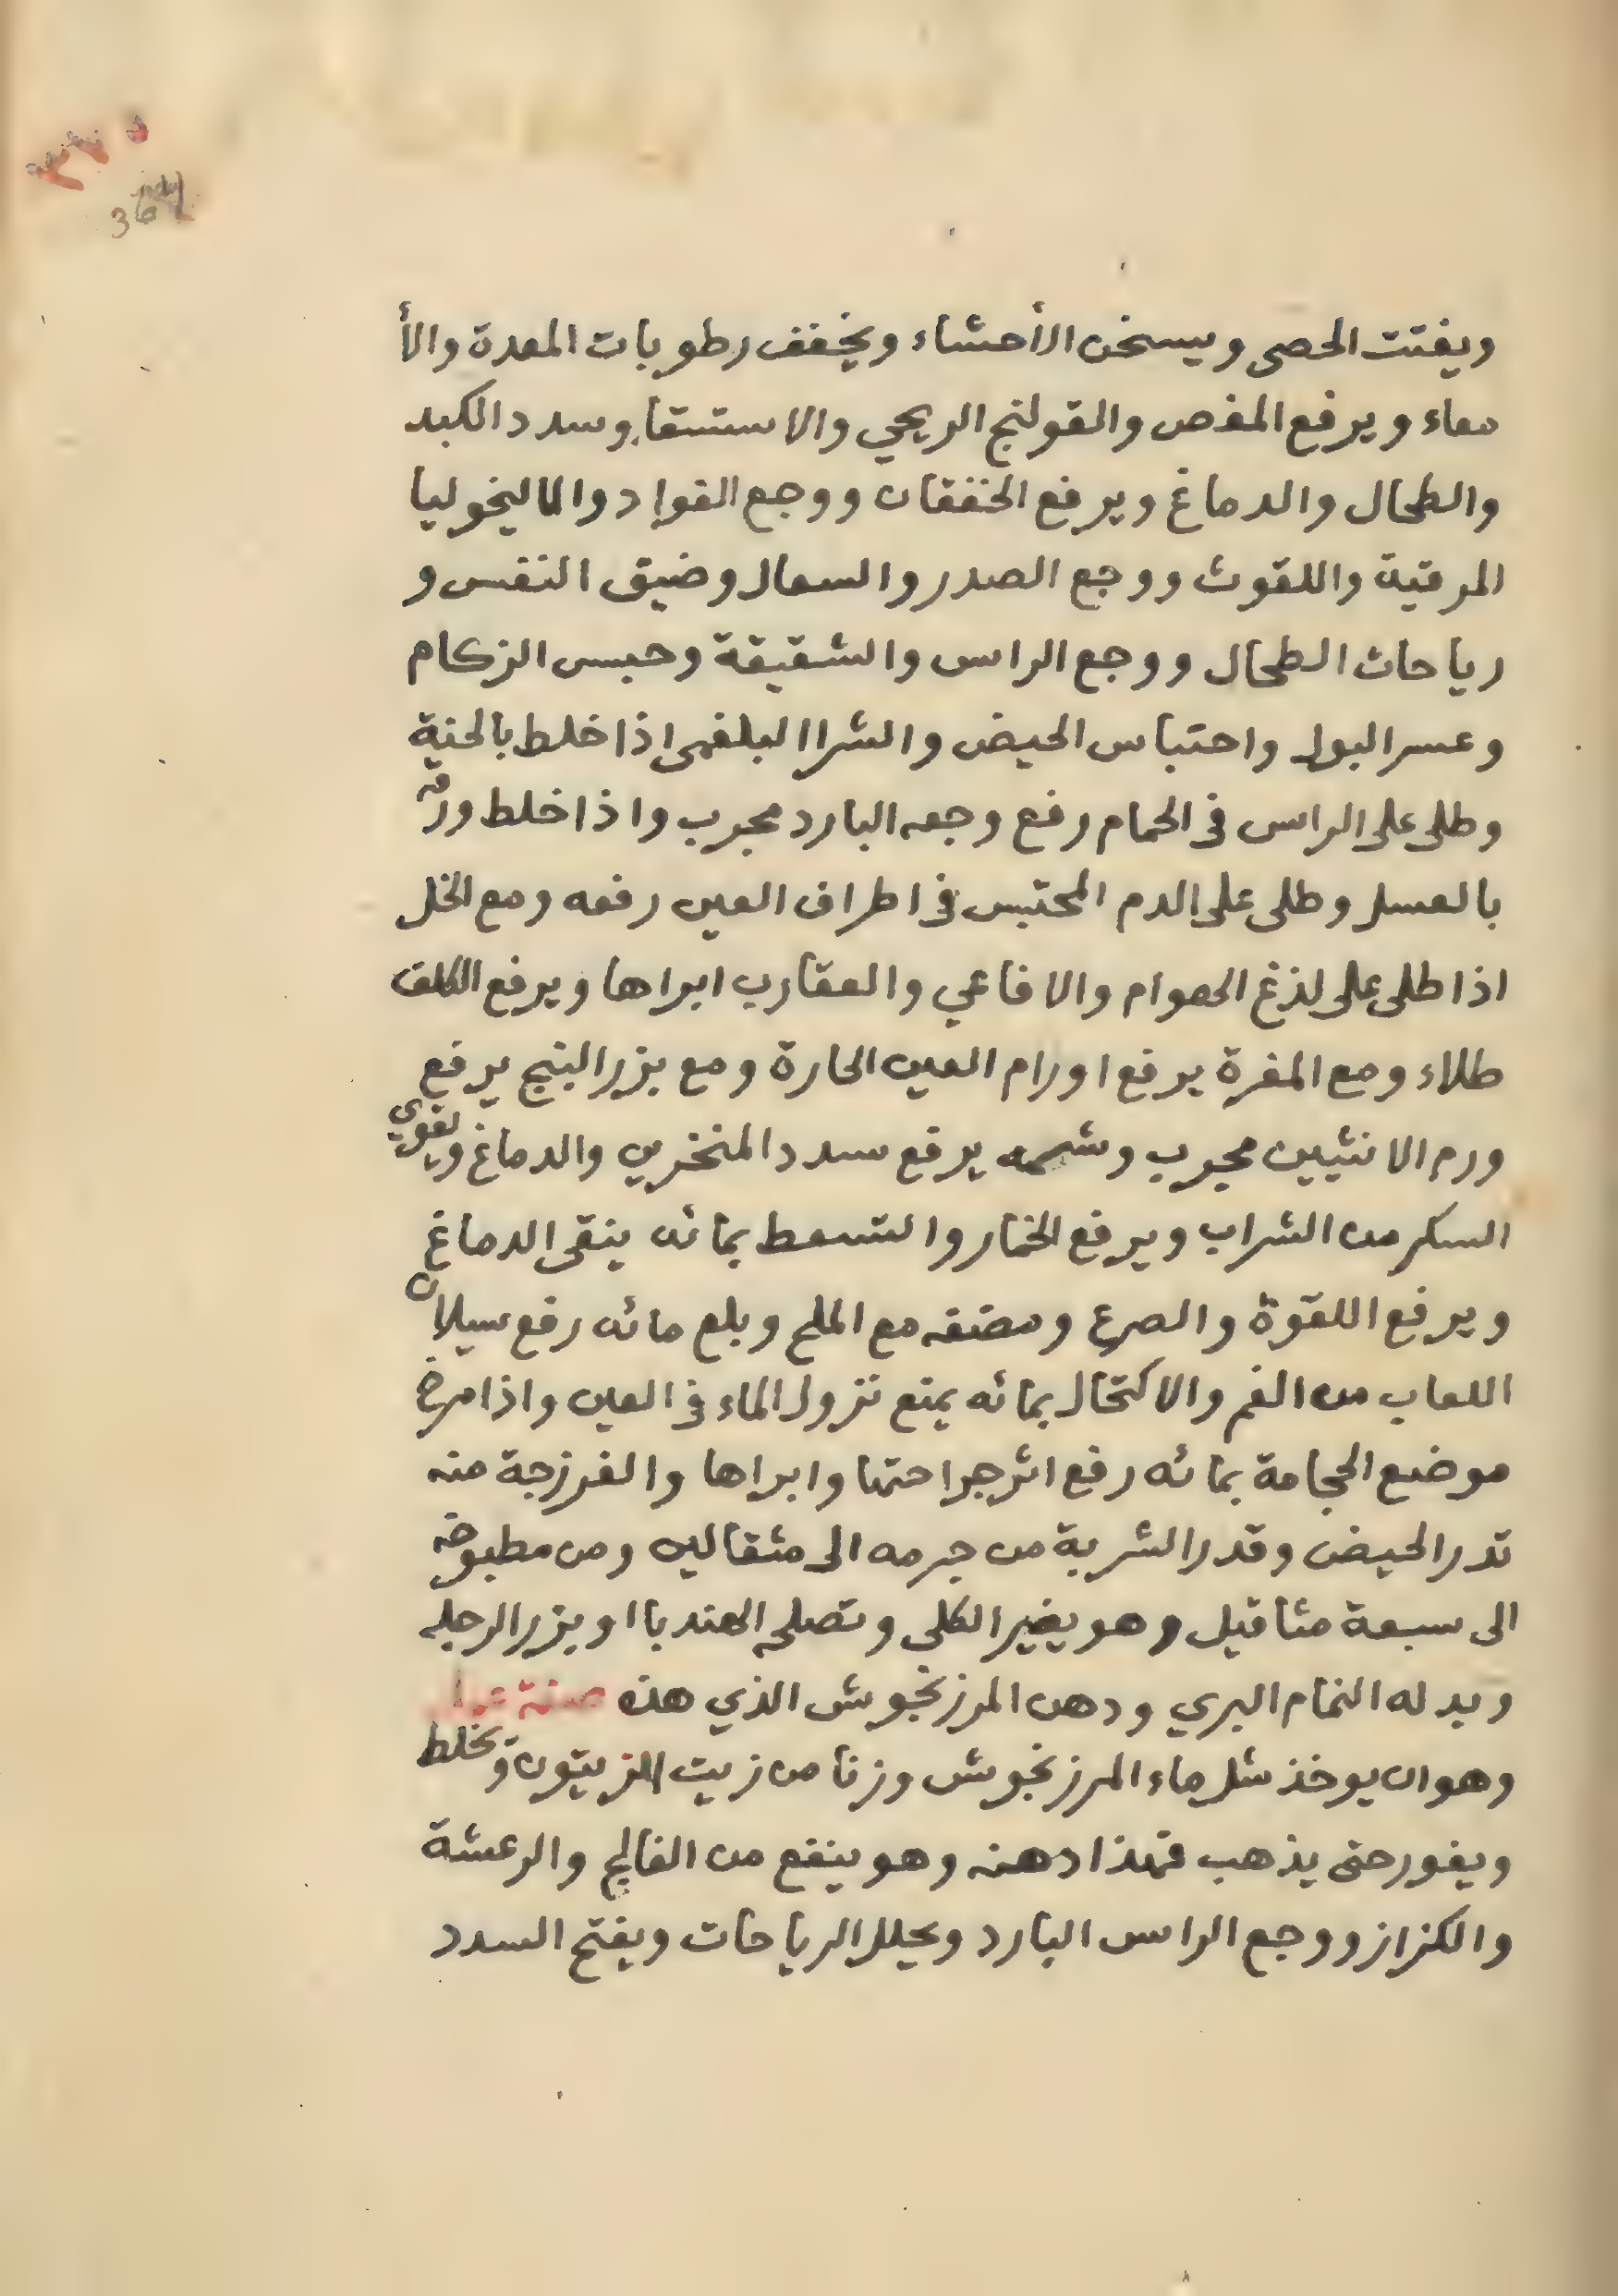 364
ويفتت الحصى ويسخن الأحشاء ويخفف رطوبات المعدة والأ
معاء ويرفع المغص والقولنج الريحي والاستسقا وسدد الكبد
والطحال والدماغ ويرفع الخفقان ووجع الفواد والماليخوليا
المرقية واللقوث ووجع الصدر والسعال وضيق النفس و
رياحات الطحال ووجع الراس والشقيقة وحبس الزكام
وعسر البول واحتباس الحيض والشرا البلغمى اذا خلط بالحنة
وطلى على الراس فى الحمام رفع وجعه البارد مجرب واذا خلط ورقه
بالعسل وطلى على الدم المحتبس فى اطراف العين رفعه ومع الخل
اذا طلى على لذغ الهوام والافاعي والعقارب ابراها ويرفع الكلف
طلاء ومع المغرة يرفع اورام العين الحارة ومع بزر البنج يرفع
ورم الانثيين مجرب وشمه يرفع سدد المنخرين والدماغ ويقوي
السكر من الشراب ويرفع الخمار والتسعط بمائه ينقى الدماغ
ويرفع اللقوة والصرع ومضغه مع الملح وبلع مائه رفع سيلان
اللعاب من الفم والاكتحال بمائه يمنع نزول الماء فى العين واذا مرخ
موضع الحجامة بمائه رفع اثر جراحتها وابراها والفرزجة منه
تدر الحيض وقدر الشربة من جرمه الى مثقالين ومن مطبوخه
الى سبعة مثاقيل وهو يغير الكلى وتصلحه الهندبا او بزر الرجله
وبدله النمام البري ودهن المرزنجوش الذي هذه صفة
وهو ان يوخذ مثل ماء المرزنجوش وزنا من زيت الزيتون وتخلط
ويفور حتى يذهب فهذا دهنه وهو ينفع من الفالج والرعشة
والكزاز ووجع الراس البارد ويحلل الرياحات ويفتح السدد